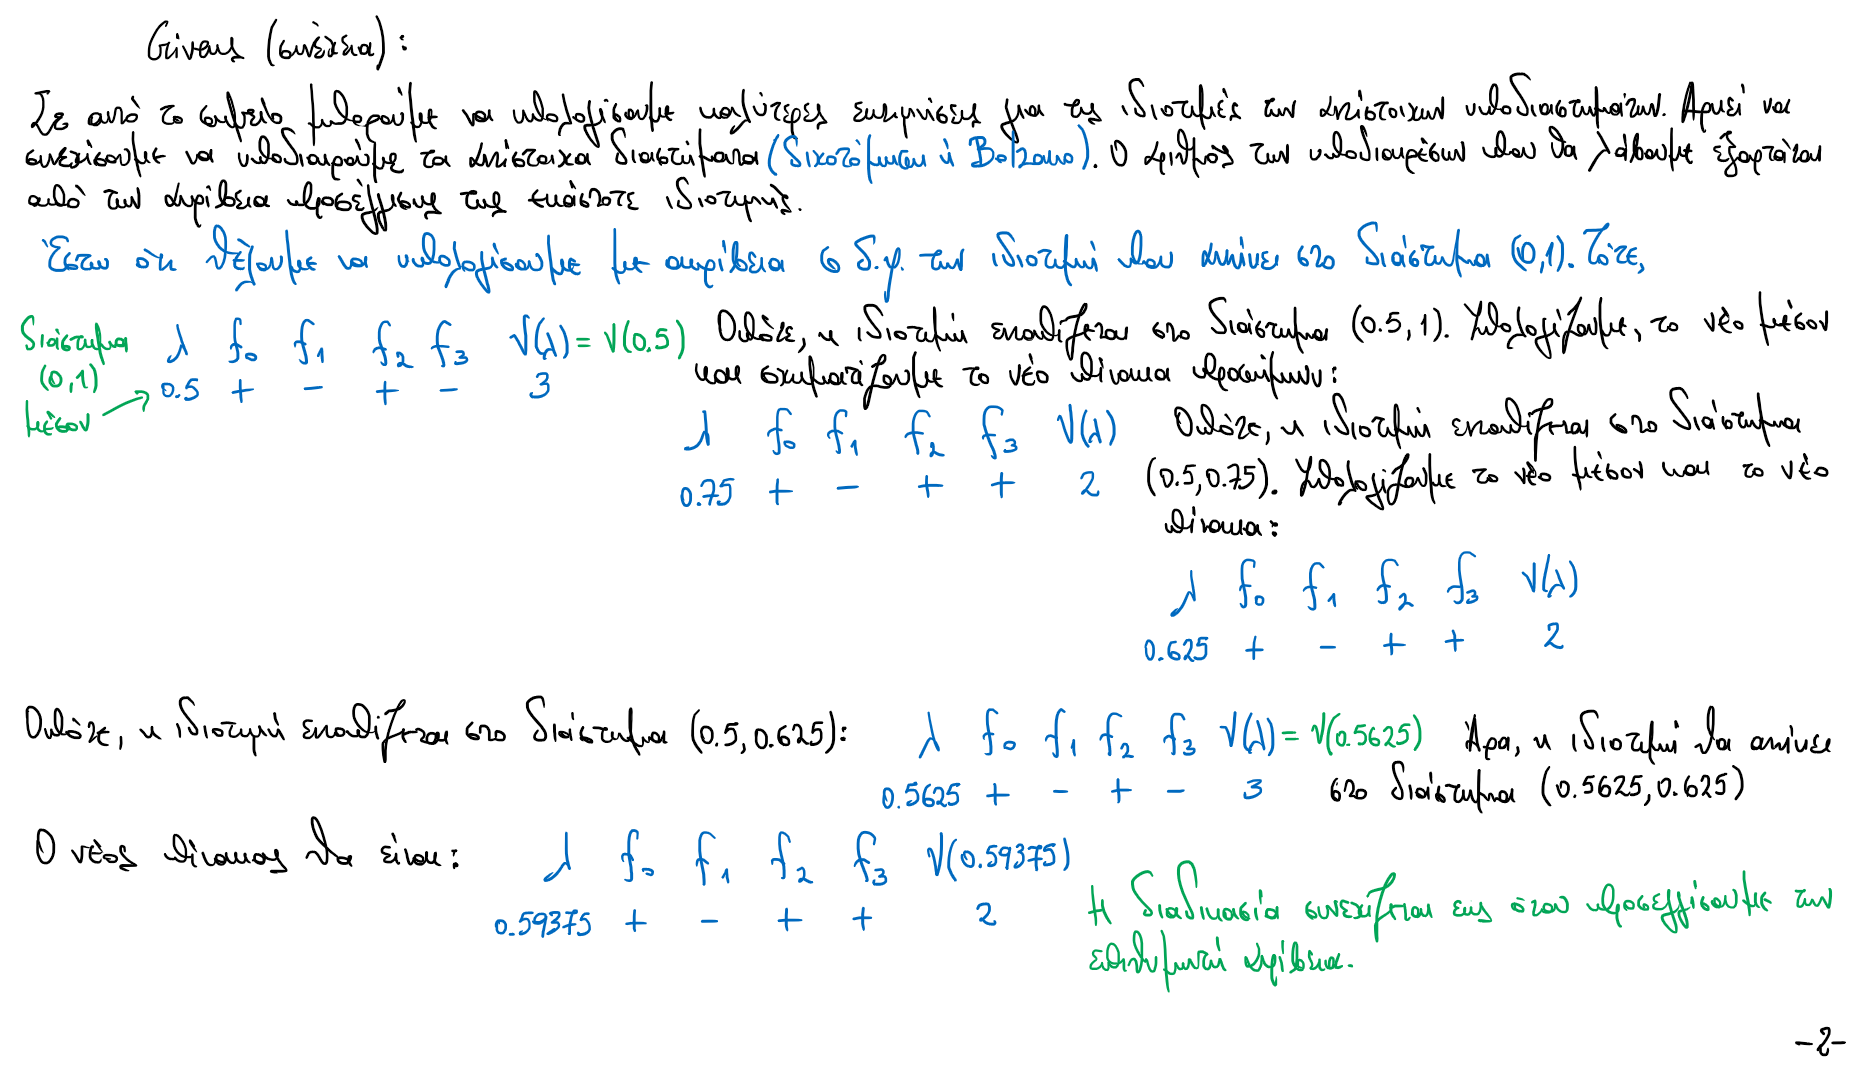 Givens (συνέχεια):
Σε αυτό το σημείο μπορούμε να υπολογίσουμε καλύτερες εκτιμήσεις για τις ιδιοτιμές των αντίστοιχων υποδιαστημάτων. Αρκεί να
συνεχίσουμε να υποδιαιρούμε τα αντίστοιχα διαστήματα (διχοτόμηση ή Bolzano). Ο αριθμός των υποδιαιρέσεων που θα λάβουμε εξαρτάται
από την ακρίβεια προσέγγισης της εκάστοτε ιδιοτιμής.
Έστω ότι θέλουμε να υπολογίσουμε με ακρίβεια 6 δ.ψ. την ιδιοτιμή που ανήκει στο διάστημα (0,1). Τότε,
διάστημα (0,1) μέσον
λ f₀ f₁ f₂ f₃ V(λ) = V(0.5)
0.5 + - + - 3
Οπότε, η ιδιοτιμή εντοπίζεται στο διάστημα (0.5, 1). Υπολογίζουμε, το νέο μέσον
και σχηματίζουμε το νέο πίνακα προσήμων:
λ f₀ f₁ f₂ f₃ V(λ)
0.75 + - + + 2
Οπότε, η ιδιοτιμή εντοπίζεται στο διάστημα
(0.5, 0.75). Υπολογίζουμε το νέο μέσον και το νέο
πίνακα:
λ f₀ f₁ f₂ f₃ V(λ)
0.625 + - + + 2
Οπότε, η ιδιοτιμή εντοπίζεται στο διάστημα (0.5, 0.625):
λ f₀ f₁ f₂ f₃ V(λ) = V(0.5625)
0.5625 + - + - 3
Άρα, η ιδιοτιμή θα ανήκει
στο διάστημα (0.5625, 0.625)
Ο νέος πίνακας θα είναι:
λ f₀ f₁ f₂ f₃ V(0.59375)
0.59375 + - + + 2
Η διαδικασία συνεχίζεται εως ότου προσεγγίσουμε την
επιθυμητή ακρίβεια.
-2-